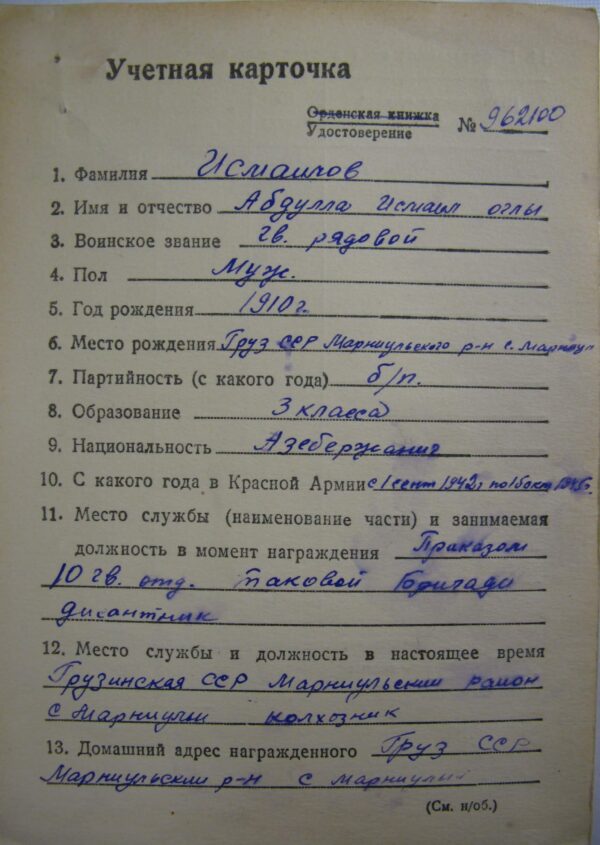 Учетная карточка
Орденская книжка
Удостоверение № 962100
1. Фамилия Исмаилов
2. Имя и отчество Абдулла Исмаил оглы
3. Воинское звание гв. рядовой
4. Пол Муж.
5. Год рождения 1910 г.
6. Место рождения Груз ССР Марниульского р-н с. Марниул
7. Партийность (с какого года) б/п.
8. Образование 3 класса
9. Национальность Азебержанич
10. С какого года в Красной Армии с 1 сент 1942 г по 16 окт 1945г.
11. Место службы (наименование части) и занимаемая
должность в момент награждения Приказом
10 гв. отд. таковой бригади
дисантник
12. Место службы и должность в настоящее время
Грузинская ССР Марниульский район
с Марниули колхозник
13. Домашний адрес награжденного Груз ССР
Марниульский р-н с Марниули
(См. н/об.)